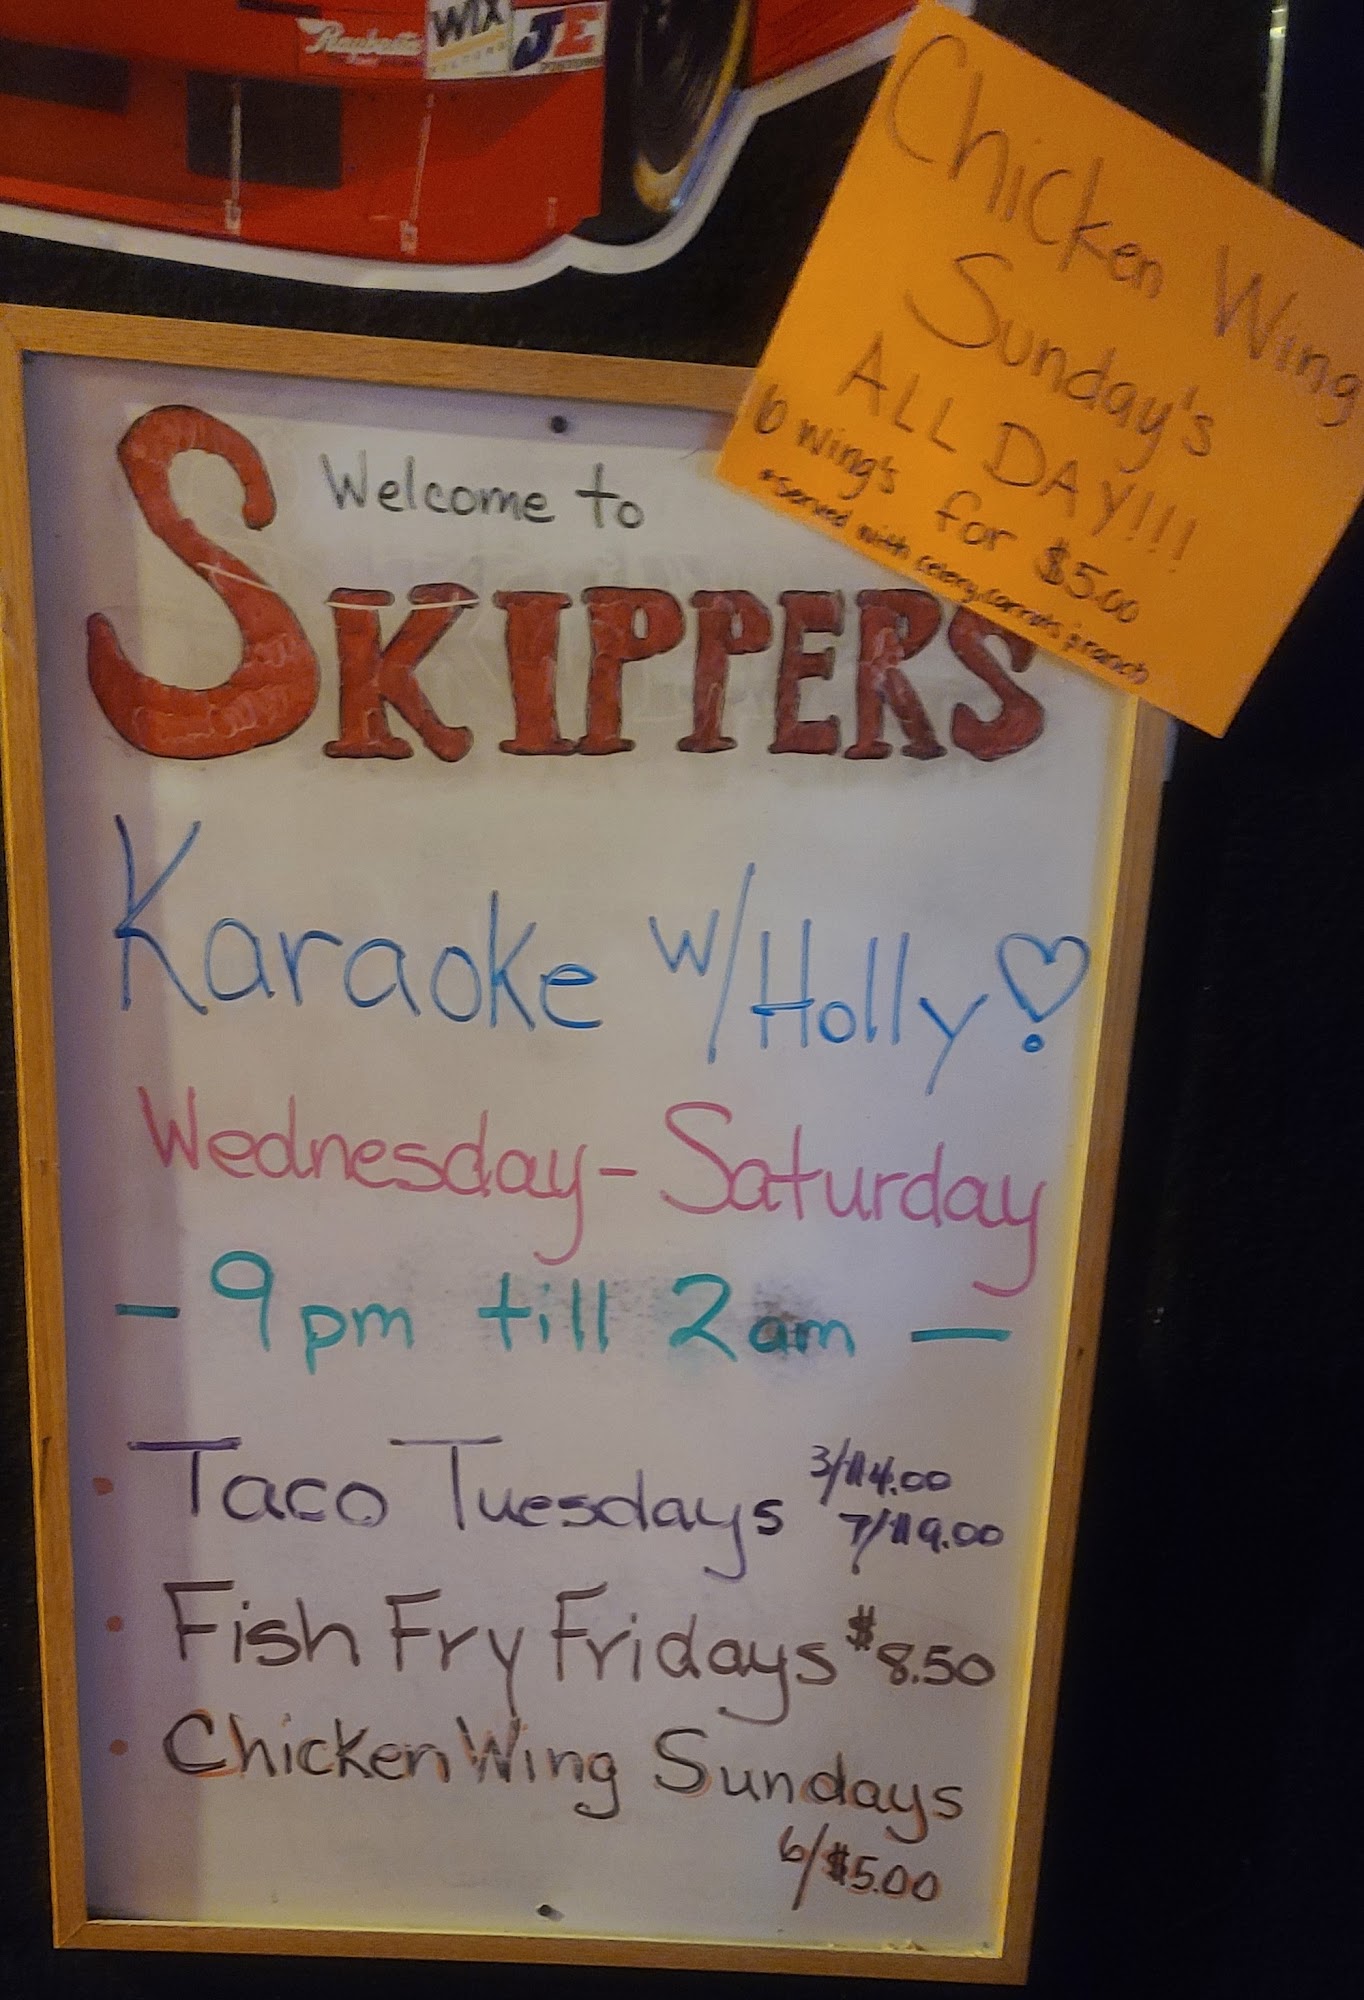 Raybestos
WIX
FILTERS
JE
PISTONS
Chicken Wing
Sunday's
ALL DAY!!!
6 wing's for $5.00
*served with celery, carrots, & ranch
Welcome to
SKIPPERS
Karaoke w/Holly!
Wednesday-Saturday
- 9pm till 2am -
• Taco Tuesdays 3/$4.00
7/$9.00
• Fish Fry Fridays $8.50
• Chicken Wing Sundays
6/$5.00